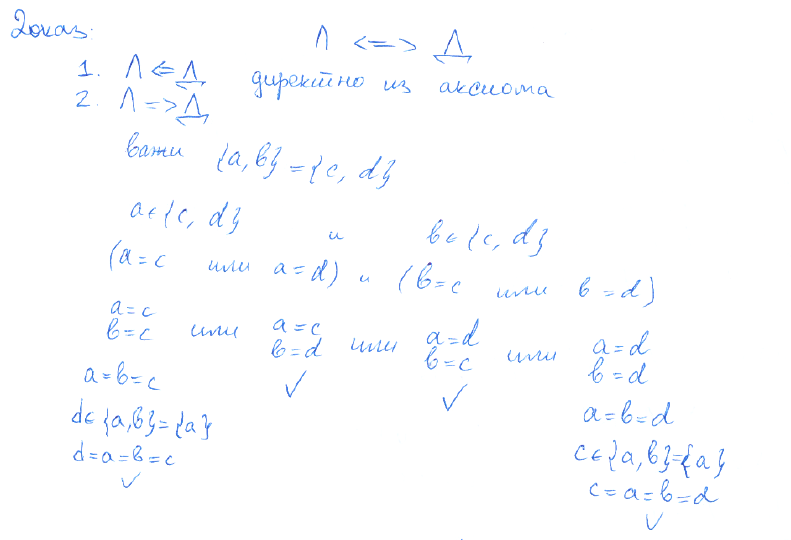 Доказ:
Л <=> Д
1. Л <= Д директно из аксиома
2. Л => Д
важи {a, b} = {c, d}
a ∈ {c, d} и b ∈ {c, d}
(a = c или a = d) и (b = c или b = d)
a = c или a = c или a = d или a = d
b = c b = d b = c b = d
a = b = c ✓ ✓ a = b = d
d ∈ {a, b} = {a} c ∈ {a, b} = {a}
d = a = b = c c = a = b = d
✓ ✓